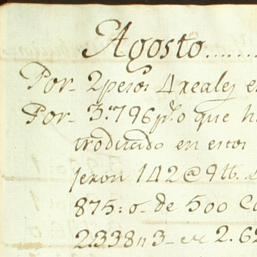 Agosto........
Por- 2 pesos 4 reales e
Por- 3.796 p.s o que h
troducido en estos
jeron 142@9lb.
875: o- de 500 Ca
2.338 n 3- en 2.62